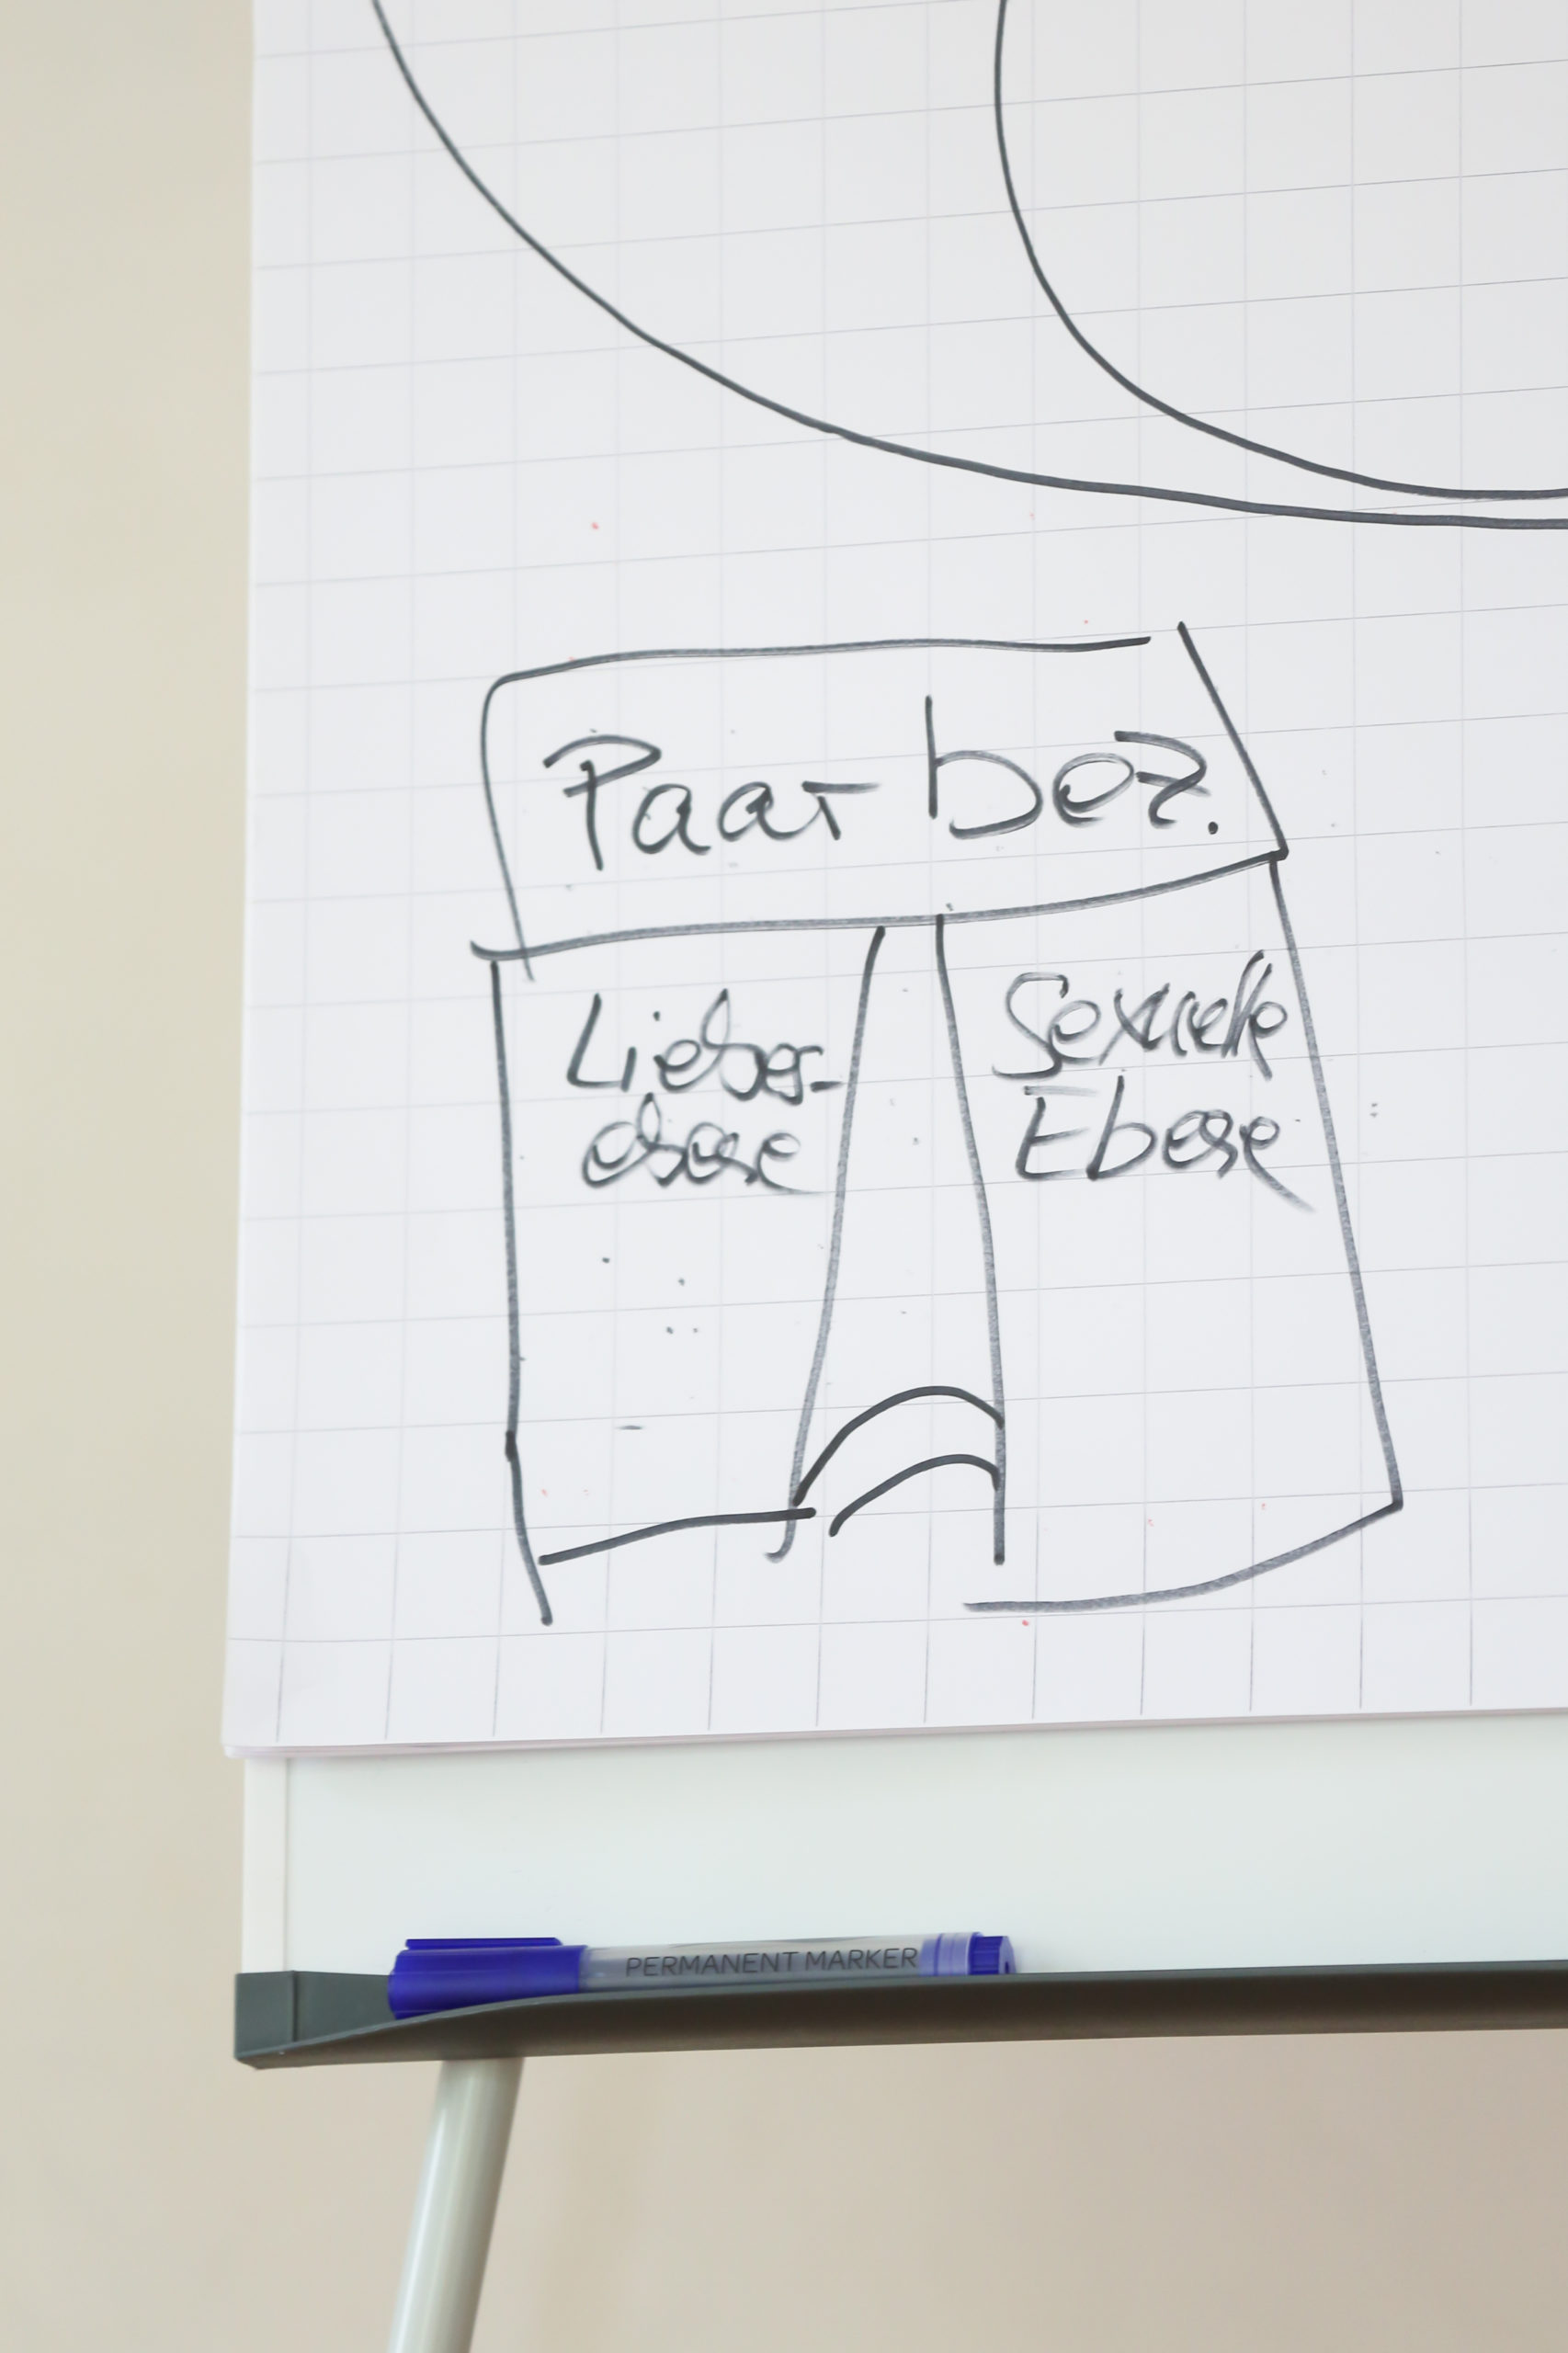 Paarbez.
Liebes-
ebene
Sexuelle
Ebene
PERMANENT MARKER